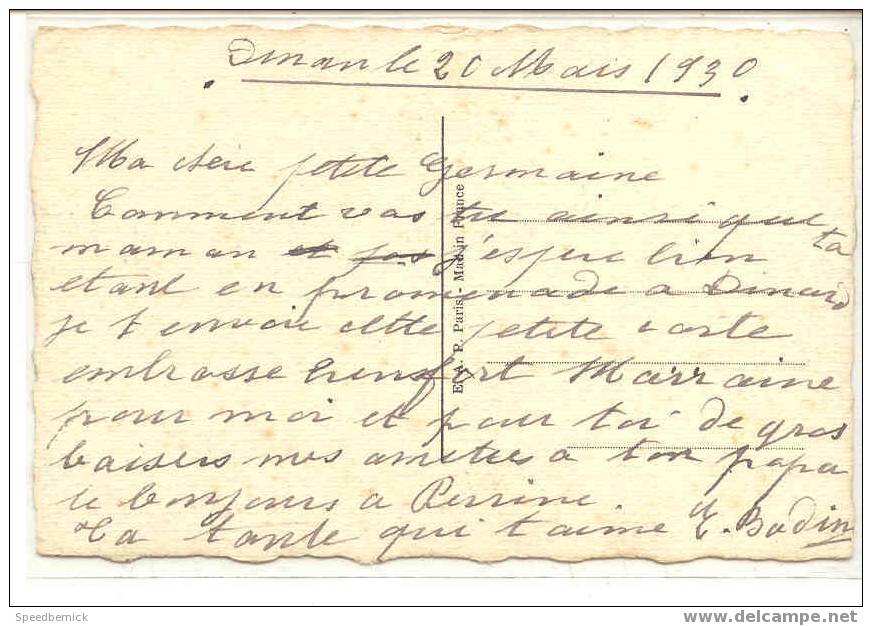 Dinan le 20 Mais 1930
Ma chére petite Germaine
Comment vas tu ainsi que ta
maman et pas j'espere bien
etant en promenade a Dinard
je t envoie cette petite carte
embrasse bien fort Marraine
pour moi et pour toi de gros
baisers mes amities a ton papa
le bonjours a Perrine
Ta tante qui t'aime E. Bodin
E. A. P. Paris - Made in France
Speedbernick
www.delcampe.net